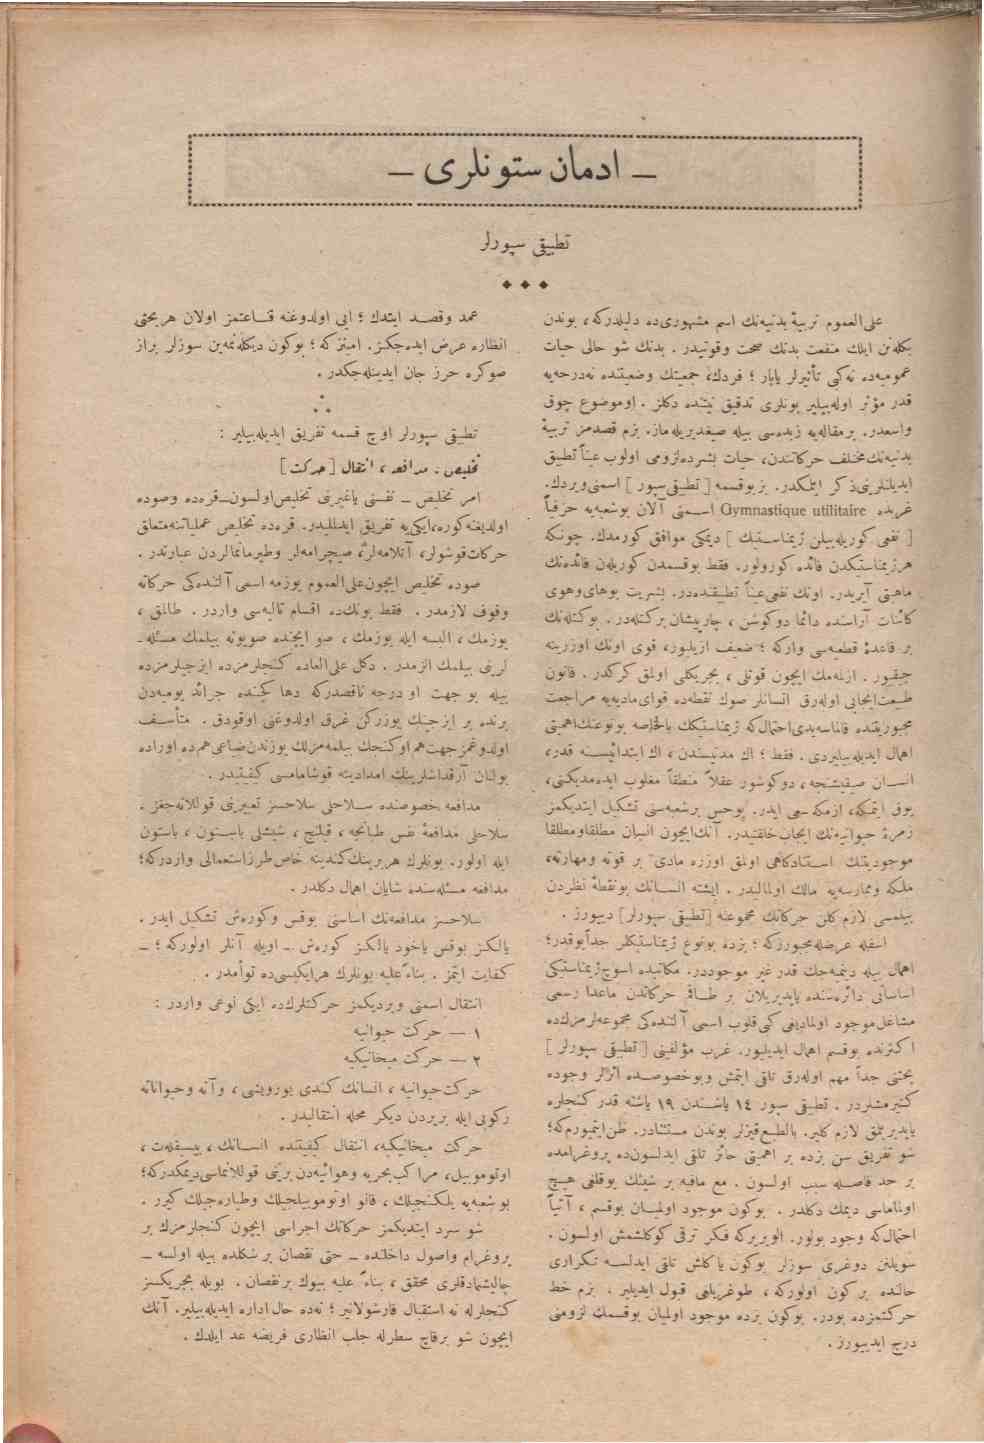 — ادمان ستونلری —
تطبیقی سپورلر
علی‌العموم تربیهٔ بدنیه‌نك اسم مشهوری‌ده دلیلدرکه، بوندن
بکله‌نن ایلك منفعت بدنك صحت وقوتیدر. بدنك شو حالی حیات
عمومیه‌ده نه‌کبی تأثیرلر یاپار ؛ فردك، جمعیتك وضعیتنده نه‌درجه‌یه
قدر مؤثر اوله‌بیلیر بونلری تدقیق نیتنده دکلز . اوموضوع چوق
واسعدر. برمقاله‌یه زبده‌سی بیله صیغدیریله‌ماز. بزم قصدمز تربیهٔ
بدنیه‌نك مختلف حرکاتندن، حیات بشرده‌لزومی اولوب عیناً تطبیق
ایدیلنلرینی‌ذکر ایتمکدر. بز بوقسمه [ تطبیقی‌سپور ] اسمنی‌ویردك.
غربده Gymnastique utilitaire اسمنی آلان بوشعبه‌یه حرفیاً
[ نفعی کوریله‌بیلن ژیمناستیك ] دیمکی موافق کورمدك. چونکه
هرژیمناستیکدن فائده کورولور. فقط بوقسمدن کوریله‌ن فائده‌نك
ماهیتی آیریدر. اونك نفعی‌عیناً تطبیقنده‌در. بشریت بوهای‌وهوی
کائنات آراسنده دائما دوکوشن ، چارپیشان برکتله‌در. بوکتله‌نك
بر قاعدهٔ قطعیه‌سی وارکه ؛ ضعیف ازیلیور، قوی اونك اوزرینه
چیقیور . ازلمه‌مك ایچون قوتلی ، بجریکلی اولمق کرکدر. قانون
طبیعت‌ایجابی اوله‌رق انسانلر صوك نقطه‌ده قوای‌مادیه‌یه مراجعت
مجبوریتنده قالماسه‌یدی‌احتمال‌که ژیمناستیکك بالخاصه بونوعنك‌اهمیتی
اهمال ایدیله‌بیلیردی. فقط ؛ اك مدنیسندن، اك ابتدائیسنه قدر،
انسان صیقیشنجه، دوکوشور عقلاً منطقاً مغلوب ایده‌مدیکنی،
یوق ایتمکه، ازمکه سعی ایدر. بوحس برشعبه‌سی تشکیل ایتدیکمز
زمرهٔ حیوانیه‌نك ایجاب‌خلقتیدر. آنك‌ایچون انسان مطلقاومطلقا
موجودیتنك استنادکاهی اولمق اوزره مادی بر قوته ومهارته،
ملکه وممارسه‌یه مالك اولمالیدر . ایشته انسانك بونقطهٔ نظردن
بیلمسی لازم کلن حرکاتك مجموعنه [تطبیقی سپورلر] دییورز .
اسفله عرضه‌مجبورزکه ؛ بزده بونوع ژیمناستیکلر جداًیوقدر؛
اهمال بیله دینمه‌جك قدر غیر موجوددر. مکاتبده اسوچ‌ژیمناستیکی
اساساتی دائره‌سنده یاپدیریلان بر طاقم حرکاتدن ماعدا رسمی
مشاغل‌موجود اولمادیغی کبی قلوب اسمی آلتنده‌کی مجموعه‌لرمزك‌ده
اکثرنده بوقسم اهمال ایدیلیور. غرب مؤلفینی [ تطبیقی سپورلر ]
بحثنی جداً مهم اوله‌رق تلقی ایتمش وبوخصوصده اثرلر وجوده
کتیرمشلردر . تطبیقی سپور ١٤ یاشندن ١٩ یاشنه قدر کنجلره
یاپدیریلمق لازم کلیر. بالطبع‌قیزلر بوندن مستثنادر. ظن‌ایتمیورم‌که؛
شو تفریق سن بزده بر اهمیتی حائز تلقی ایدلسون‌ده پروغرامده
بر حد فاصله سبب اولسون . مع مافیه بر شیئك یوقلغی هیچ
اولماماسی دیمك دکلدر . بوکون موجود اولمیان بوقسم ، آتیاً
احتمال‌که وجود بولور. الویریرکه فکر ترقی کوکلشمش اولسون .
سویلنن دوغری سوزلر بوکون یاکلش تلقی ایدلسه تکراری
حالنده برکون اولورکه، طوغریلغی قبول ایدیلیر . بزم خط
حرکتمزده بودر. بوکون بزده موجود اولمیان بوقسمك لزومنی
درج ایدییورز .
عمد وقصد ایتدك ؛ ایی اولدوغنه قناعتمز اولان هربحثی
انظاره عرض ایده‌جکز. امینزکه ؛ بوکون دیکله‌نمه‌ین سوزلر براز
صوکره حرز جان ایدینله‌جکدر .
تطبیقی سپورلر اوچ قسمه تفریق ایدیله‌بیلیر :
تخلیص ، مدافعه ، انتقال [ حرکت ]
امر تخلیص ــ نفسنی یاغیرنی تخلیص‌اولسون ــ قره‌ده وصوده
اولدیغنه‌کوره، ایکی‌یه تفریق ایدیلیر. قره‌ده تخلیص عملیاتنه‌متعلق
حرکات‌قوشولر، آتلامه‌لر، صیچرامه‌لر وطیرمانمالردن عبارتدر.
صوده تخلیص ایچون‌علی‌العموم یوزمه اسمی آلتنده‌کی حرکاته
وقوف لازمدر . فقط بونك‌ده اقسام تالیه‌سی واردر. طالمق ،
یوزمك ، البسه ایله یوزمك ، صو ایچنده صویونه بیلمك مسئله ــ
لرینی بیلمك الزمدر . دکل علی‌العاده کنجلرمزده ایزجیلرمزده
بیله بوجهت او درجه ناقصدرکه دها کچنده جرائد یومیه‌دن
برنده بر ایزجینك یوزرکن غرق اولدوغنی اوقودق . متأسف
اولدوغمزجهت‌هم اوکنجك بیلمه‌مزلك یوزندن‌ضیاعی‌هم‌ده اوراده
بولنان آرقداشلرینك امدادینه قوشامامسی کیفیتیدر .
مدافعه خصوصنده سلاحلی سلاحسز تعبیرینی قوللانه‌جغز .
سلاحلی مدافعهٔ نفس طبانجه ، قیلنج ، شیشلی باستون ، باستون
ایله اولور. بونلرك هربرینك‌کندینه خاص‌طرزاستعمالی واردرکه؛
مدافعه مسئله‌سنده شایان اهمال دکلدر .
سلاحسز مدافعه‌نك اساسنی بوقس وکوره‌ش تشکیل ایدر .
یالکز بوقس یاخود یالکز کوره‌ش ــ اویله آنلر اولورکه ؛ ــ
کفایت ایتمز . بناءًعلیه بونلرك هرایکیسی‌ده توأمدر .
انتقال اسمنی ویردیکمز حرکتلرك‌ده ایکی نوعی واردر :
١ — حرکت حیوانیه
٢ — حرکت میخانیکیه
حرکت‌حیوانیه ، انسانك کندی یورویشی ، وآته وحیواناته
رکوبی ایله بریردن دیکر محله انتقالیدر .
حرکت میخانیکیه، انتقال کیفیتنده انسانك ، بیسیقلت ،
اوتوموبیل، مراکب بحریه وهوائیه‌دن برینی قوللانماسی‌دیمکدرکه؛
بوشعبه‌یه یلکنجیلك ، قانو اوتوموبیلجیلك وطیاره‌جیلك کیرر .
شو سرد ایتدیکمز حرکاتك اجراسی ایچون کنجلرمزك بر
پروغرام واصول داخلنده ــ حتی نقصان بر شکلده بیله اولسه ــ
چالیشمادقلری محقق ، بناءً علیه بیوك بر نقصان . بویله بجریکسز
کنجلر له نه استقبال قارشولانیر ؛ نه‌ده حال اداره ایدیله‌بیلیر. آنك
ایچون شو برقاچ سطرله جلب انظاری فریضه عد ایلدك .